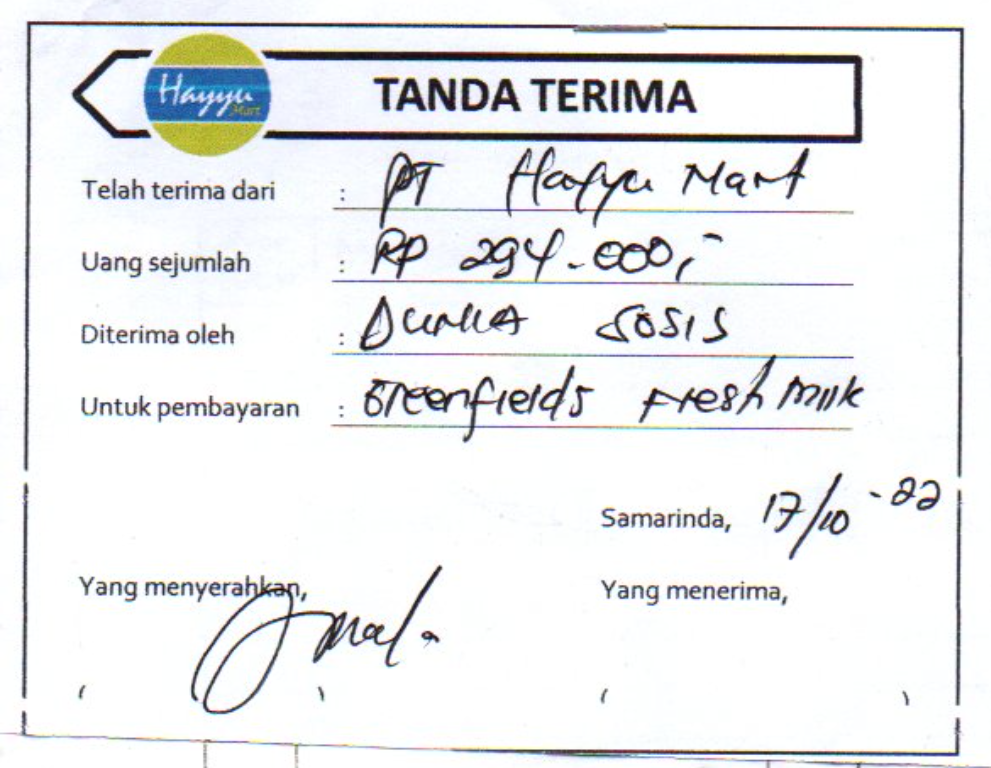 Hayyu Mart
TANDA TERIMA
Telah terima dari : PT Hayyu Mart
Uang sejumlah : Rp 294.000,-
Diterima oleh : DUNIA SOSIS
Untuk pembayaran : Greenfields Fresh Milk
Samarinda, 17/10 -22
Yang menyerahkan,
Yang menerima,
( )
( )